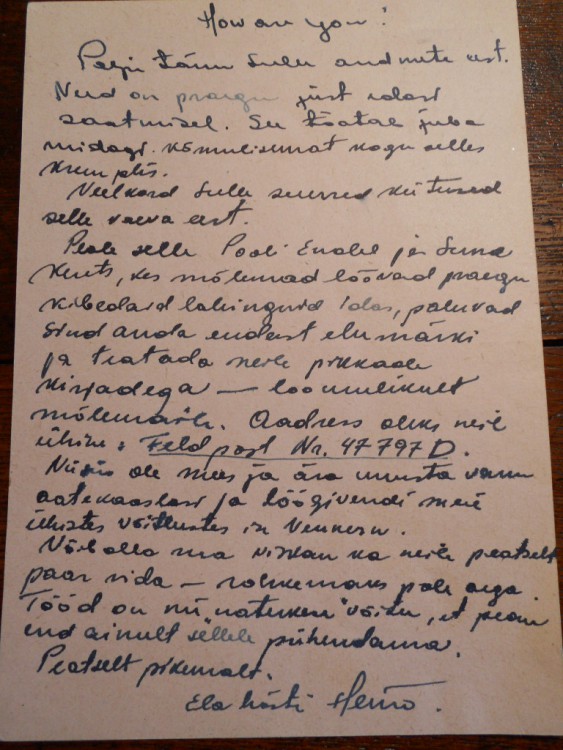 How are you!
Palju tänu Sulle andmete eest.
Need on praegu just edasi
saatmisel. See töötab juba
midagi kogu selles
Veelkord Sulle suured kiitused
selle vaeva eest.
Peale selle Pooli Endel ja Suna
Kents, kes mõlemad löövad praegu
kibedaid lahinguid idas, paluvad
Sind anda endast elumärki
ja teatada neile pikkade
kirjadega — loomulikult
mõlemaile. Aadress oleks neil
ühine: Feldpost Nr. 47797D.
Niisiis ole mees ja ära unusta vanu
aatekaaslasi ja töögivendi meie
ühistes võitlustes in Vennern.
Võib olla ma viskan ka neile peatselt
paar rida — rohkemaks pole aega.
Tööd on nii, et pean
end ainult "sellele" pühendama.
Peatselt pikemalt.
Ela hästi Heino.